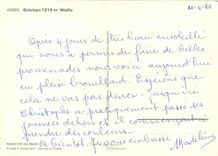 46885 Grächen 1619 m. Wallis
20-4-88
Après 4 jours de très beau ensoleillé
qui nous a permis de faire de belles
promenades nous voici aujourd'hui
en plein brouillard. Espérons que
cela ne va pas durer jusqu'ici
Christophe a pratiquement passé ses
journées dehors et il commence
prendre des couleurs.
A bientôt. Je vous embrasse
Madeleine